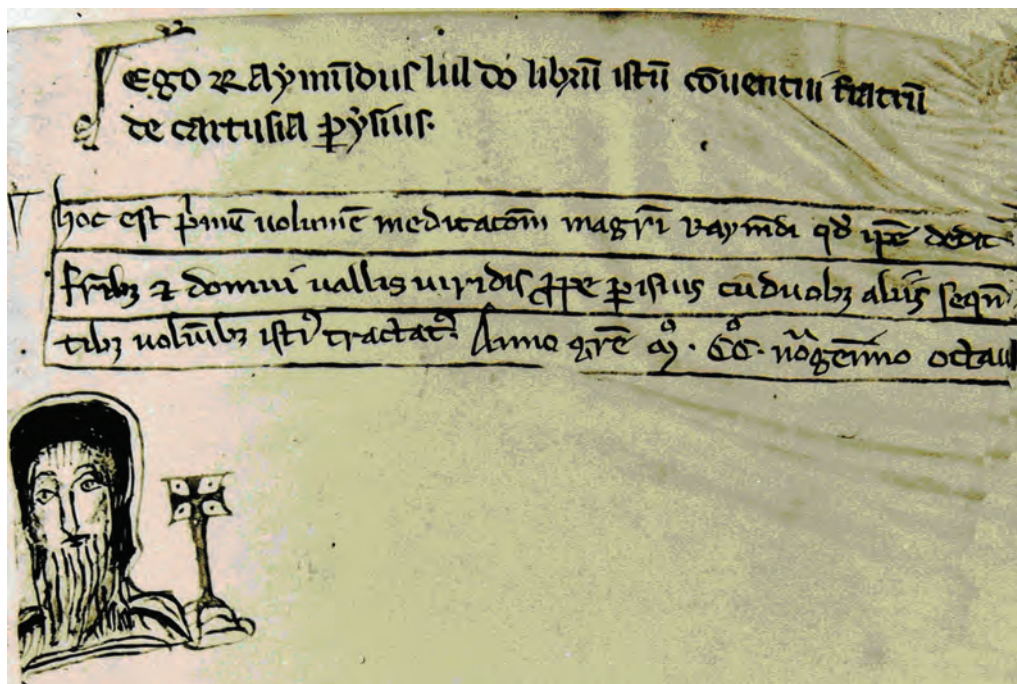 Ego Raymūdus lul do librū istū cōventui fratrū
de cartusia pysius.
hoc est p̄mū volumē meditacōm magr̄i Raymdi qd̄ ip̄e dedit
fr̄ibȝ ⁊ domui vallis viridis ꝓpe pisius cū duobȝ aliis seqn̄
tibȝ volūībȝ istiꝰ tractatꝰ. Anno gr̄e mͦ. CCͦ. nōgēmo octau